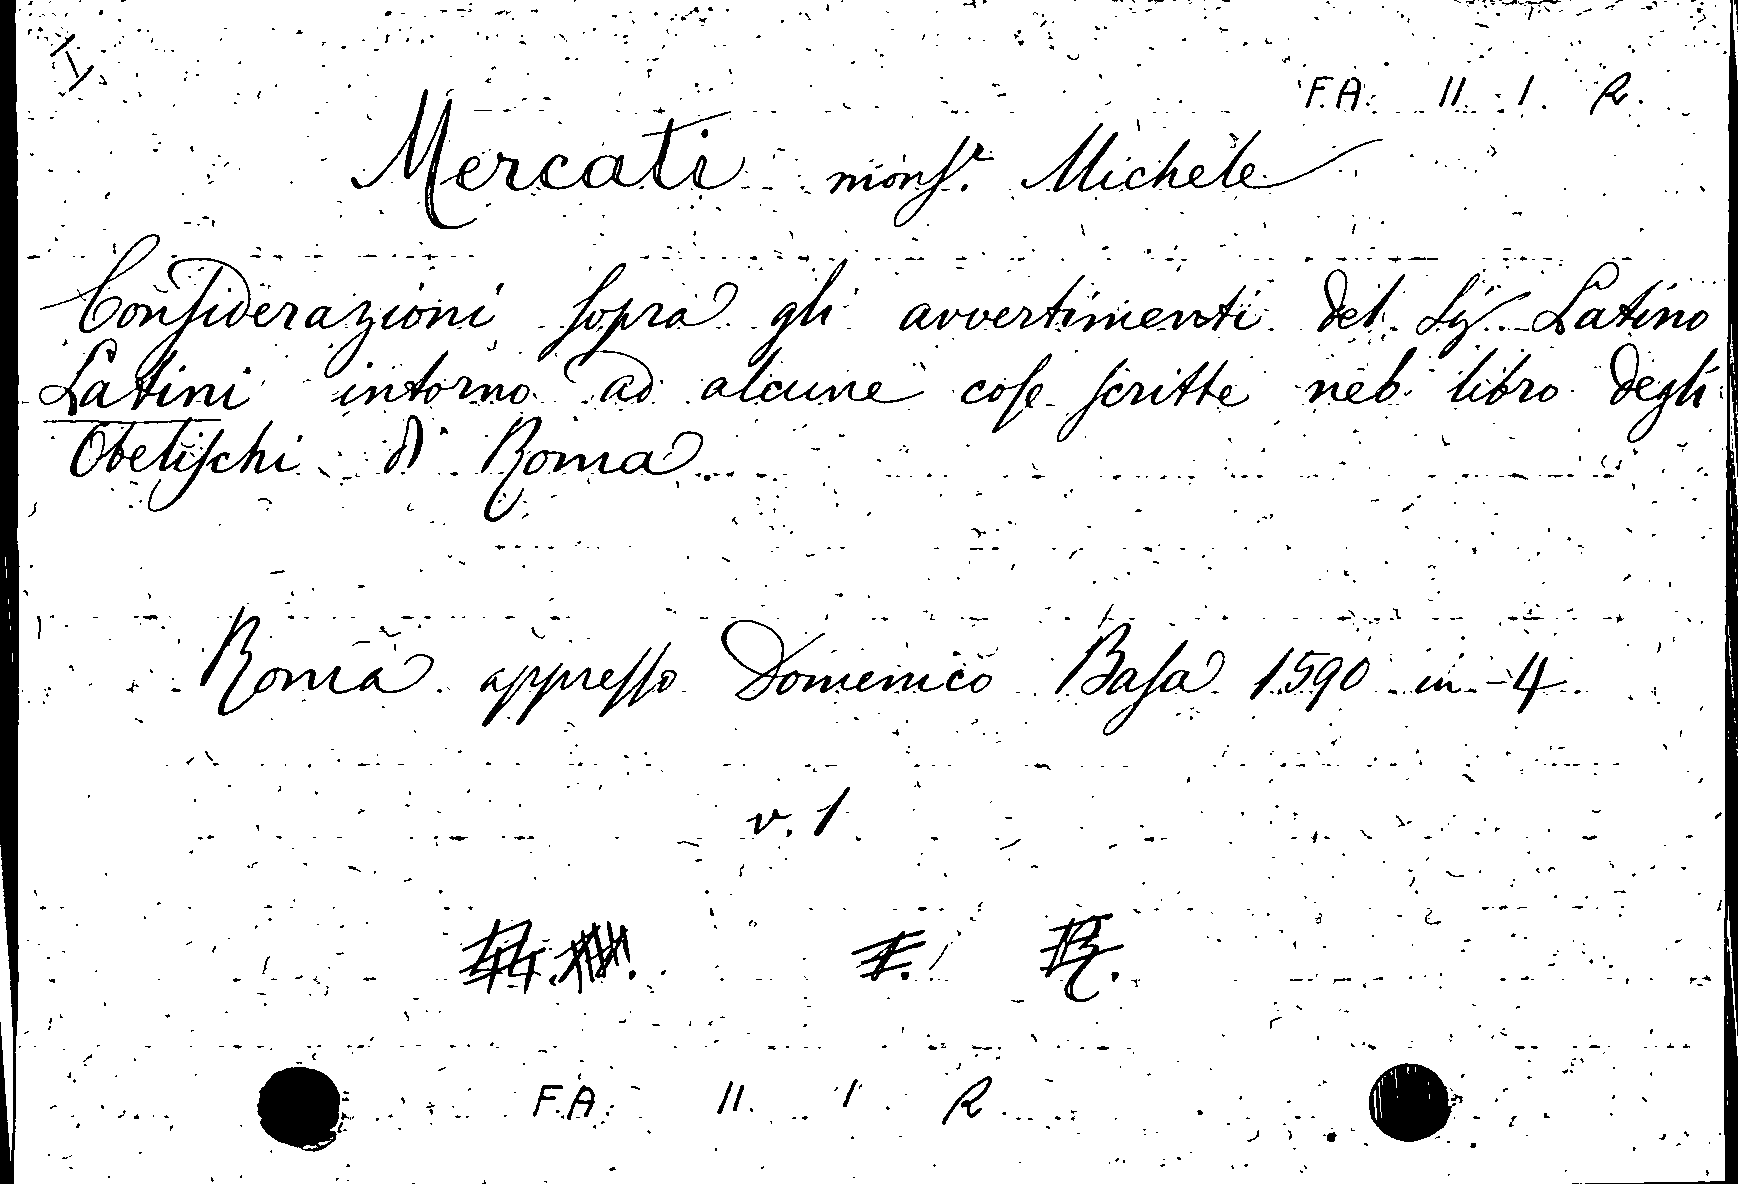 F.A. II. 1. R.
Mercati monsr. Michele
Considerazioni sopra gli avvertimenti del Sig. Latino
Latini intorno ad alcune cose scritte nel libro degli
Obelischi di Roma
Roma appresso Domenico Basa 1590 in-4
v. 1
F.A. II. 1. R